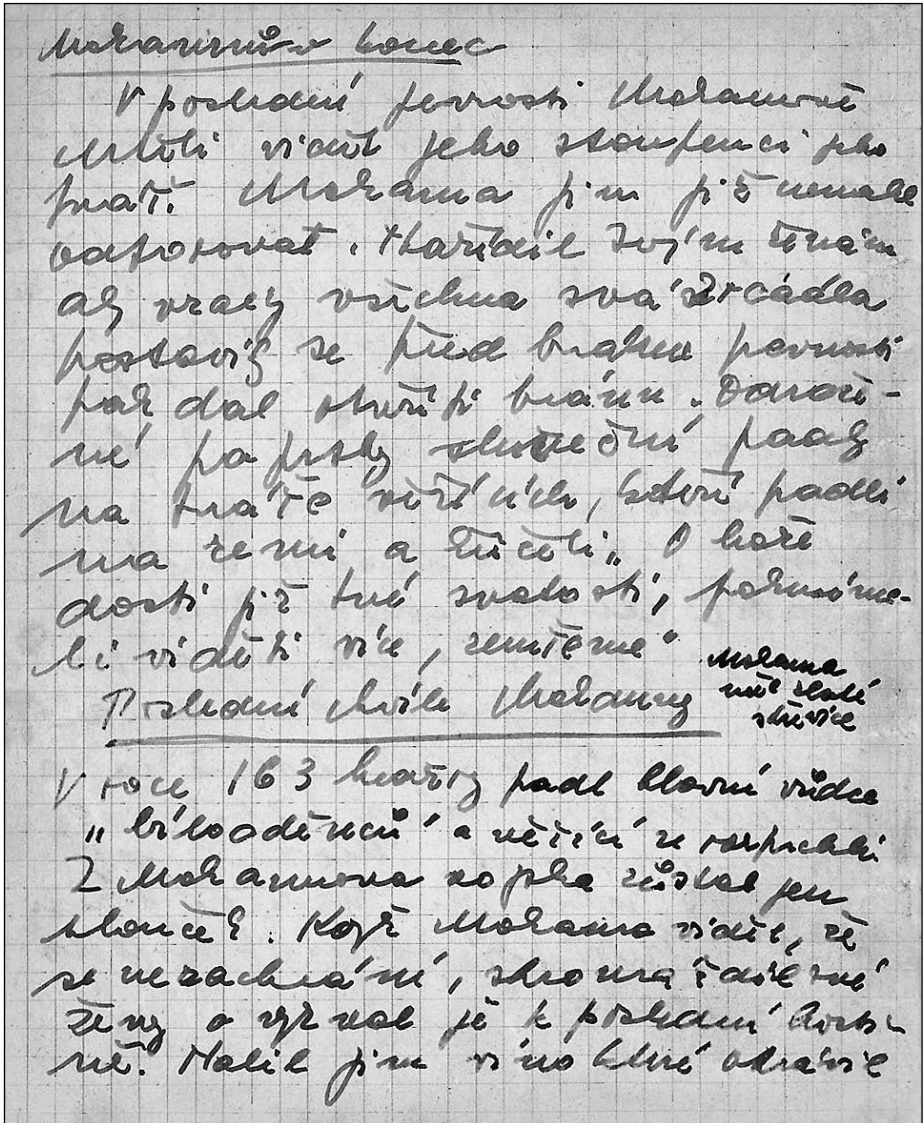 Mokannův konec
V poslední pevnosti Mokannově
chtěli vidět jeho stoupenci jeho
tvář. Mokanna jim již nemohl
odporovat. Nařídil svým ženám
aby vzaly všechna svá zrcadla
postavily se před branou pevnosti
pak dal otevříti bránu. Odraže-
né paprsky sluneční padly
na tváře věřících, kteří padli
na zemi a křičeli „O bože
dosti již tvé svatosti, pakmáme-
li viděti více, zemřeme"
Mokanna
měl zlaté
střevíce
Poslední chvíle Mokanny
V roce 163 hedžry padl hlavní vůdce
„bělooděnců" a věřící se rozprchli
Z Mokannova vojska zůstal jen
hlouček. Když Mokanna viděl, že
se nezachrání, shromáždil své
ženy a vyzval je k poslední hosti-
ně. Nalil jim víno které otrávil